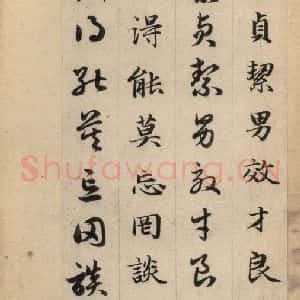 貞絜男效才良
貞絜男效才良
得能莫忘罔談
得能莫忘罔談
Shufawang.CN